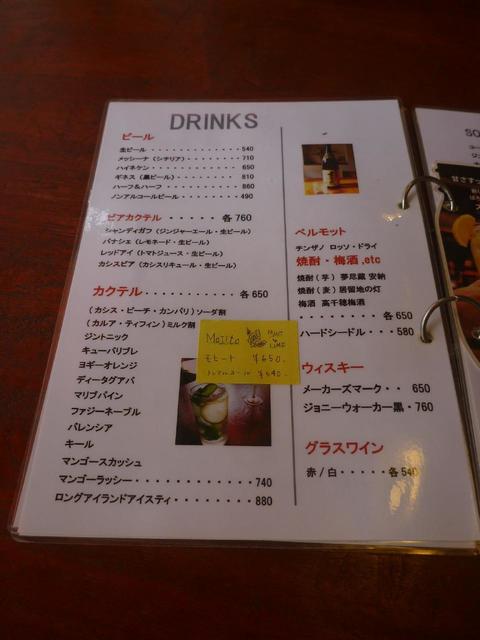 DRINKS
ビール
生ビール・・・・・・・・・・・・・540
メッシーナ（シチリア）・・・・・・・・710
ハイネケン・・・・・・・・・・・・650
ギネス（黒ビール）・・・・・・・・・810
ハーフ＆ハーフ・・・・・・・・・・860
ノンアルコールビール・・・・・・・・490
ビアカクテル・・・・・各760
シャンディガフ（ジンジャーエール・生ビール）
パナシェ（レモネード・生ビール）
レッドアイ（トマトジュース・生ビール）
カシスビア（カシスリキュール・生ビール）
カクテル・・・・・・・・・・各650
（カシス・ピーチ・カンパリ）ソーダ割
（カルア・ティフィン）ミルク割
ジントニック
キューバリブレ
ヨギーオレンジ
ディータグアバ
マリブパイン
ファジーネーブル
バレンシア
キール
マンゴースカッシュ
マンゴーラッシー・・・・・・・・・・・740
ロングアイランドアイスティ・・・・・・・・880
Mojito
MINT
LIME
モヒート ￥650.
￥640.
ベルモット
チンザノ ロッソ・ドライ
焼酎・梅酒,etc
焼酎（芋）夢尽蔵 安納
焼酎（麦）居留地の灯
梅酒 高千穂梅酒
・・・・・・・・各650
ハードシードル・・・580
ウィスキー
メーカーズマーク・・650
ジョニーウォーカー黒・760
グラスワイン
赤/白・・・・・各540
SO
甘さすっ